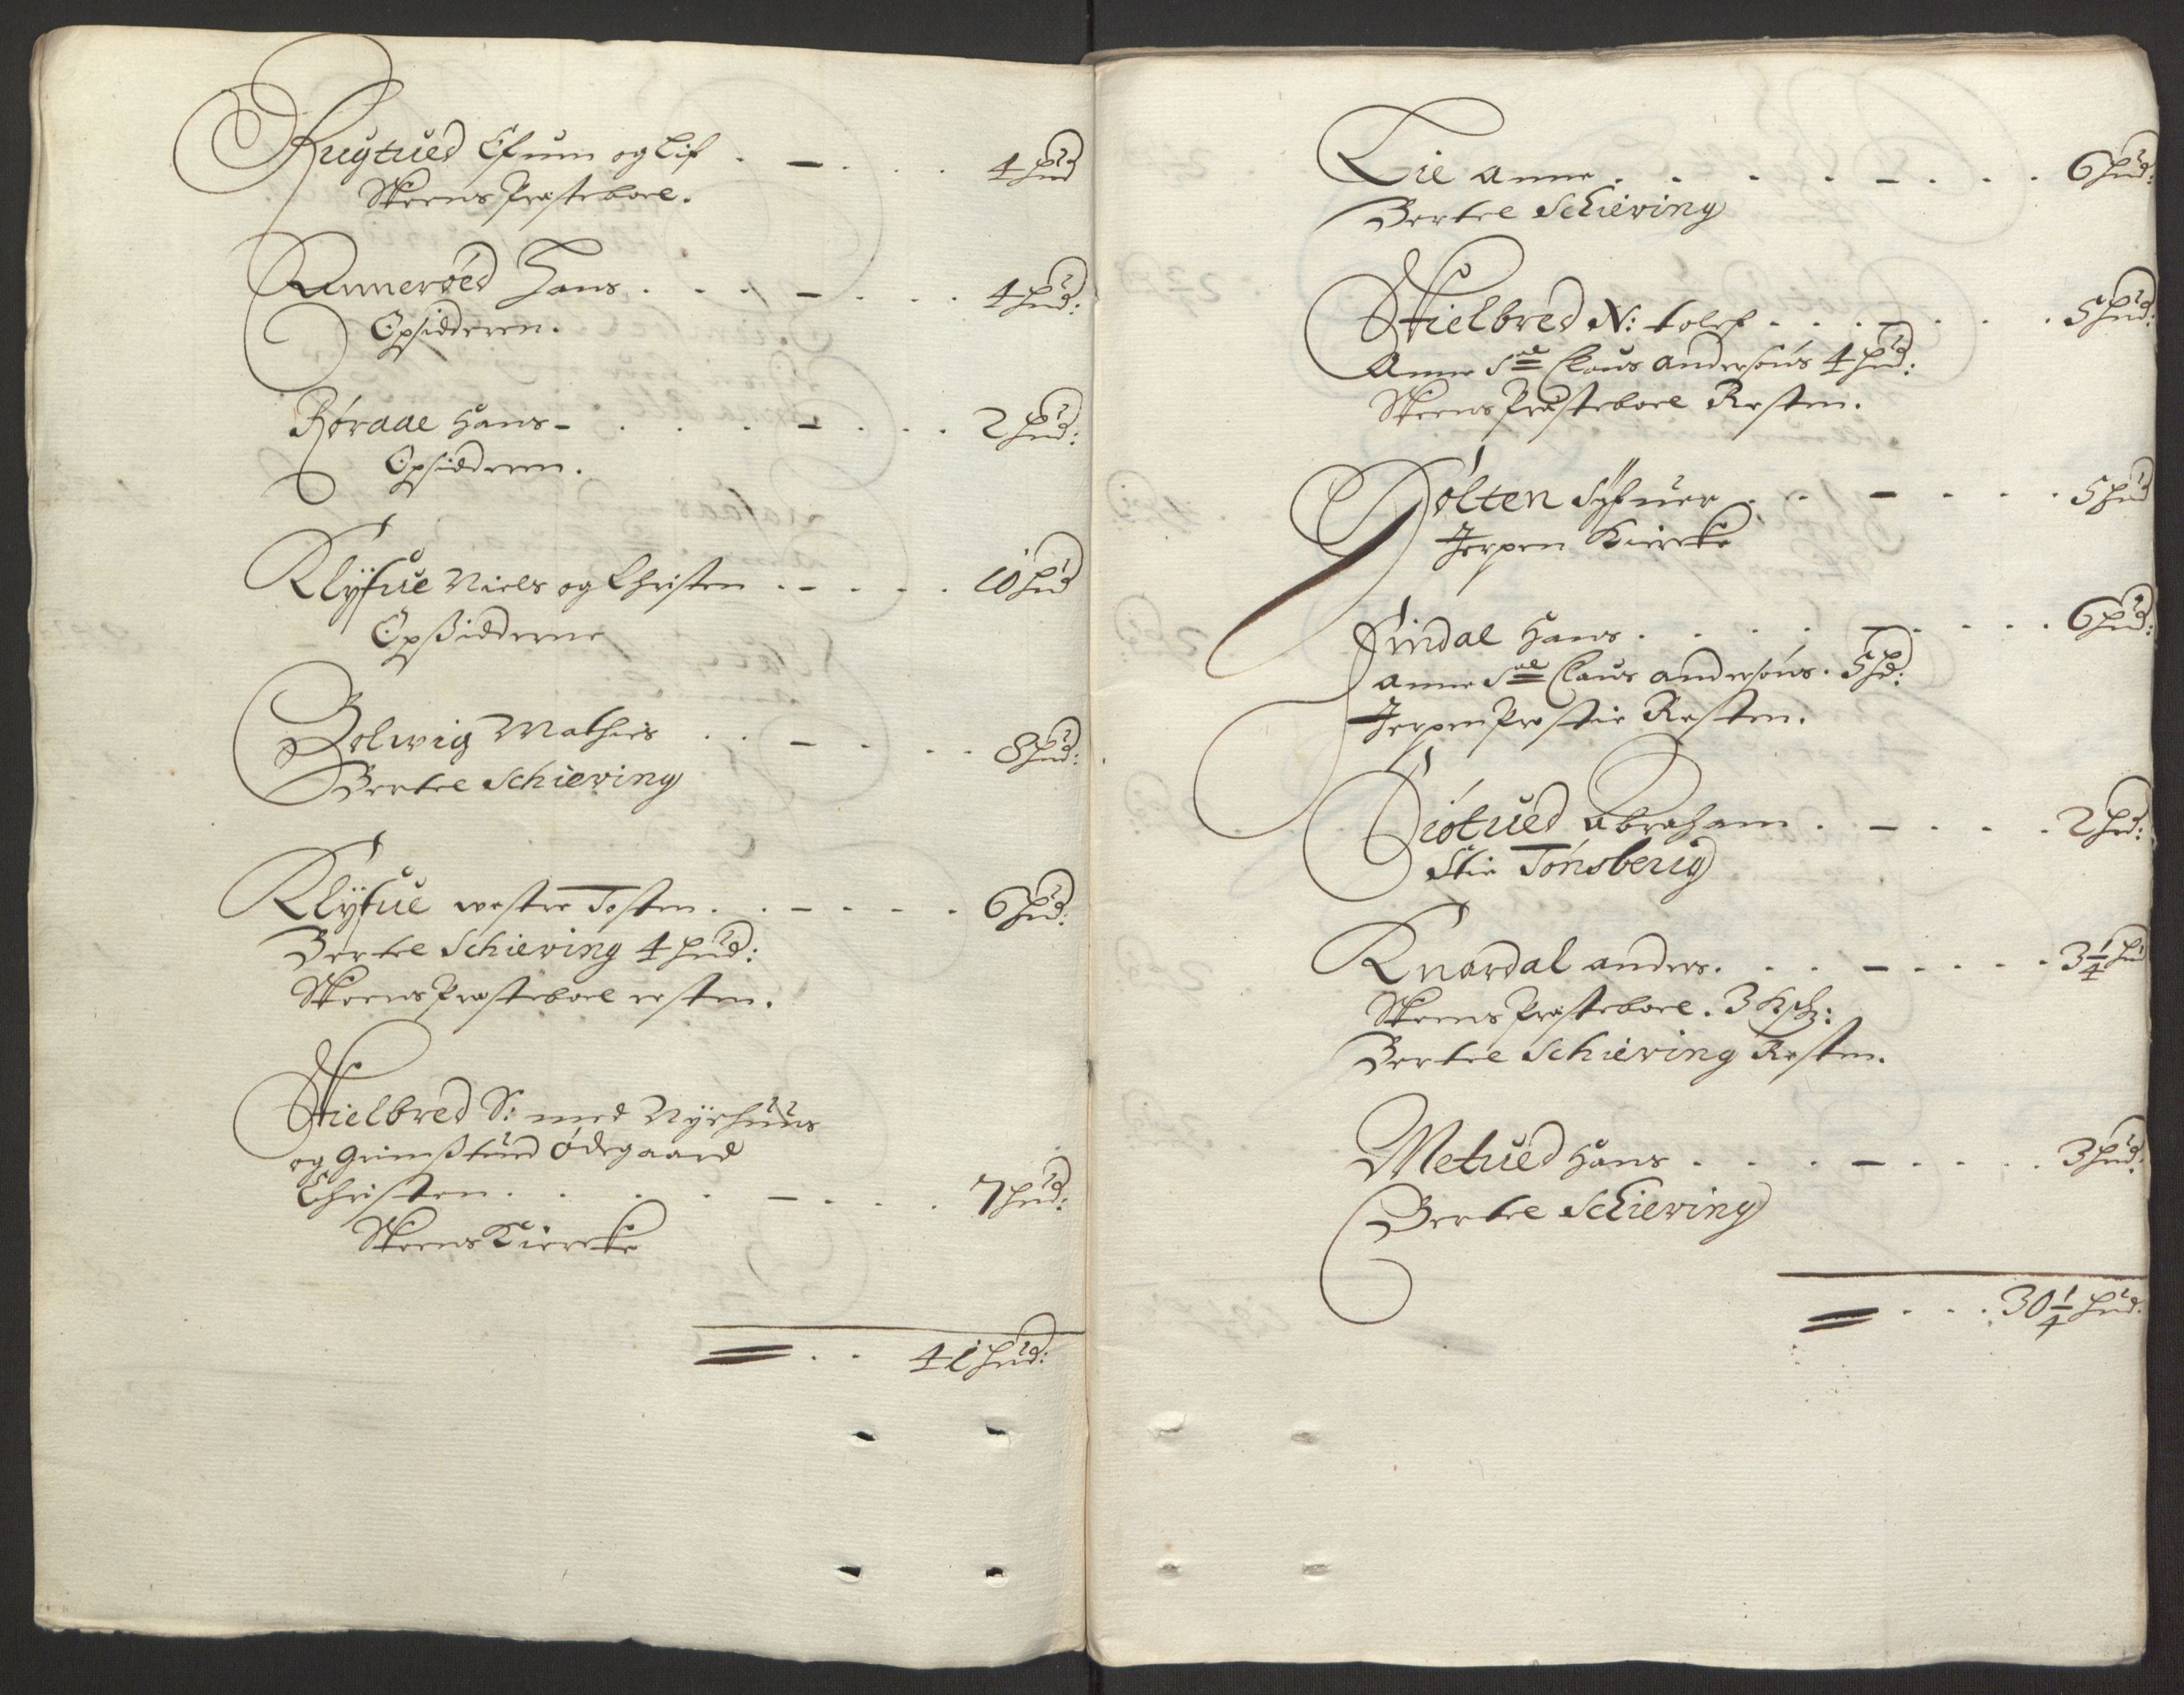 Rugtued Efuen og Lif . - . . . . 4 hud
Skeens Præsteboel.
Rennerød Hans . . . . - . . . 4 hud:
Opsidderen.
Røraae Hans - . . . . - . . . 2 hud:
Opsidderen.
Klÿfue Niels og Christen . - . . . . 10 hud
Opsidderne
Bolwig Mathis . . - . . . . 8 hud:
Bertel Schiering
Klÿfue westre Tosten . . - - - - . 6 hud:
Bertel Schiering 4 hud:
Skeens Præsteboel resten.
Stielbred S: med Nÿehuus
og Grimstued Ødegaard
Christen . . . . . - . . . . 7 hud:
Skeens Kiercke
. . 41 hud:
Lie Anne . . . . . - . . . 6 hud:
Bertel Schiering
Stielbred N: tolef . . . . - . . . . 5 hud:
Anne Sal Claus Andersøns 4 hud:
Skeens Præsteboel Resten.
Holten Sÿfuer . . . - . . . . 5 hud
Jerpen Kiercke
Findal Hans . . . . . - . . . . 6 hud:
Anne Sal Claus Andersøns . 5 hd:
Jerpen Prestie Resten.
Giøtued Abraham . - . . . . 2 hud:
Stie Tønsberig
Knardal Anders . . . . - . . . . 3 1/4 hud
Skeens Præsteboel . 3 Kalfsk:
Bertel Schiering Resten.
Metued Hans . . . . - . . . . 3 hud:
Bertel Schiering
. . . 30 1/4 hud: